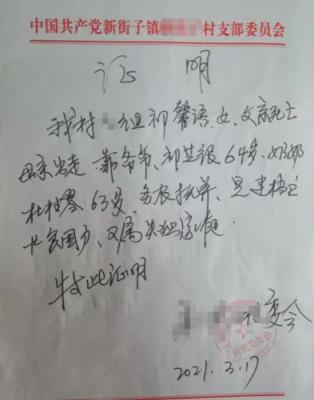 中国共产党新街子镇 村支部委员会
证 明
我村 组祁馨语、女、父亲死亡
母亲出走 靠爷爷、祁兰银64岁、奶奶
杜桂琴、63岁、务农抚养、是建档立
卡贫困户、又属失独家庭
特此证明
委会
2021.3.17